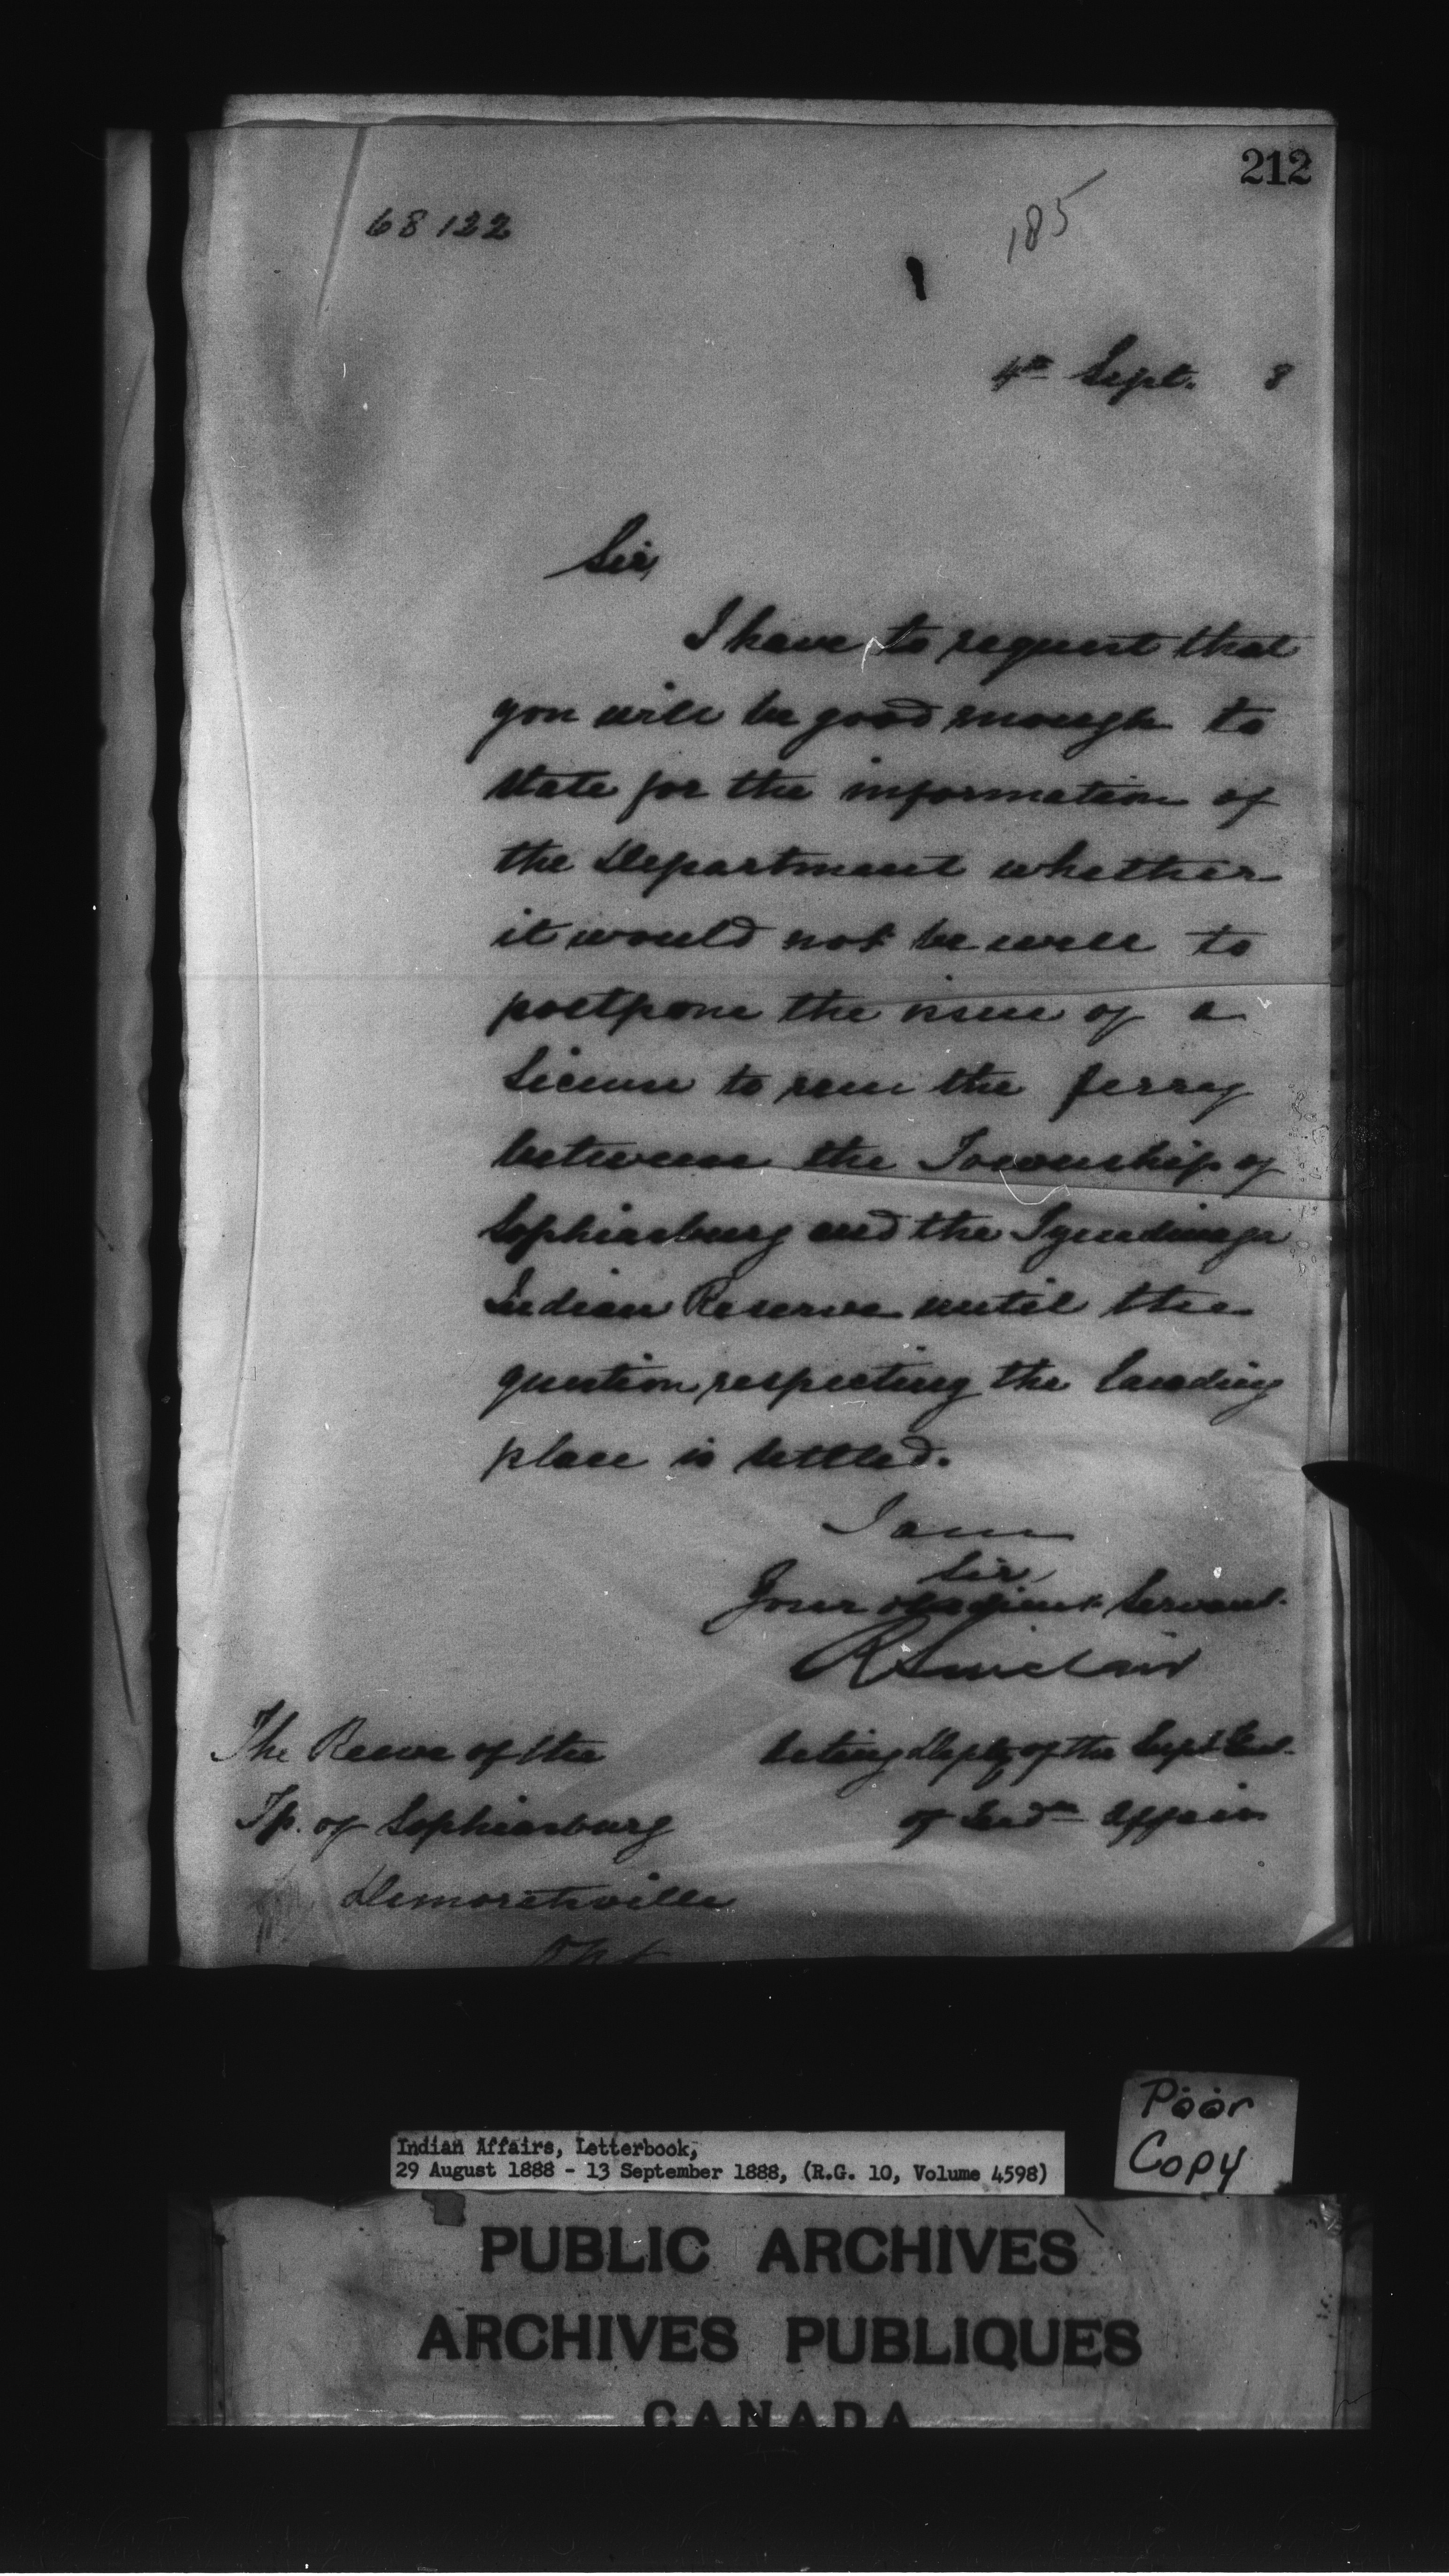 212
68122
185
4th Sept. 8
Sir,
I have to request that
you will be good enough to
state for the information of
the Department whether
it would not be well to
postpone the issue of a
License to run the ferry
between the Township of
Sophiasburg and the Tyendinaga
Indian Reserve until the
question respecting the landing
place is settled.
I am
Sir,
Your obedient Servant.
R Sinclair
The Reeve of the
Acting Depty of the Supt Genl.
Tp. of Sophiasburg
of Indn Affairs
Demorestville
Ont
Poor
Copy
Indian Affairs, Letterbook,
29 August 1888 - 13 September 1888, (R.G. 10, Volume 4598)
PUBLIC ARCHIVES
ARCHIVES PUBLIQUES
CANADA